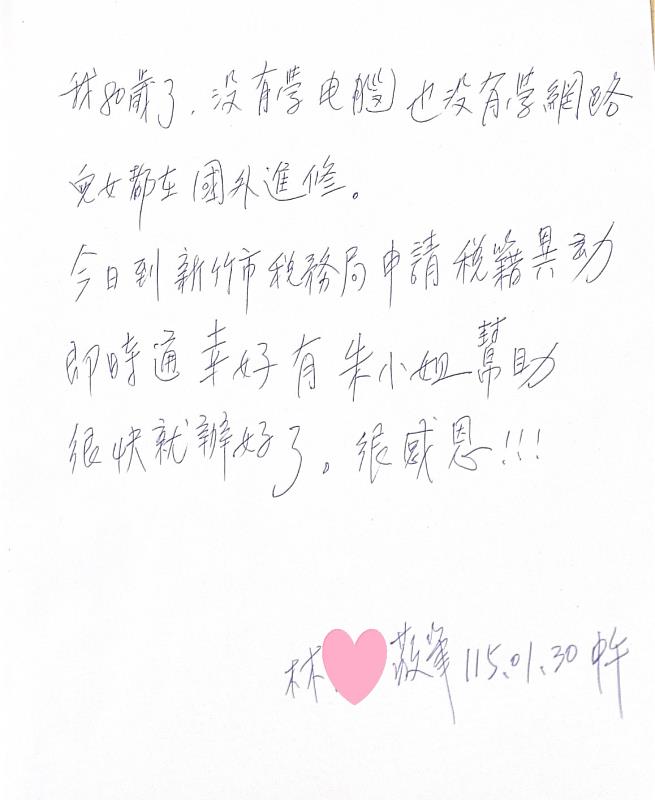 我80歲了,沒有學电腦也沒有學網路
兒女都在國外進修。
今日到新竹市稅務局申請稅籍異动
即時通幸好有朱小姐幫助
很快就辦好了。很感恩!!!
林 敬筆 115.01.30 中午